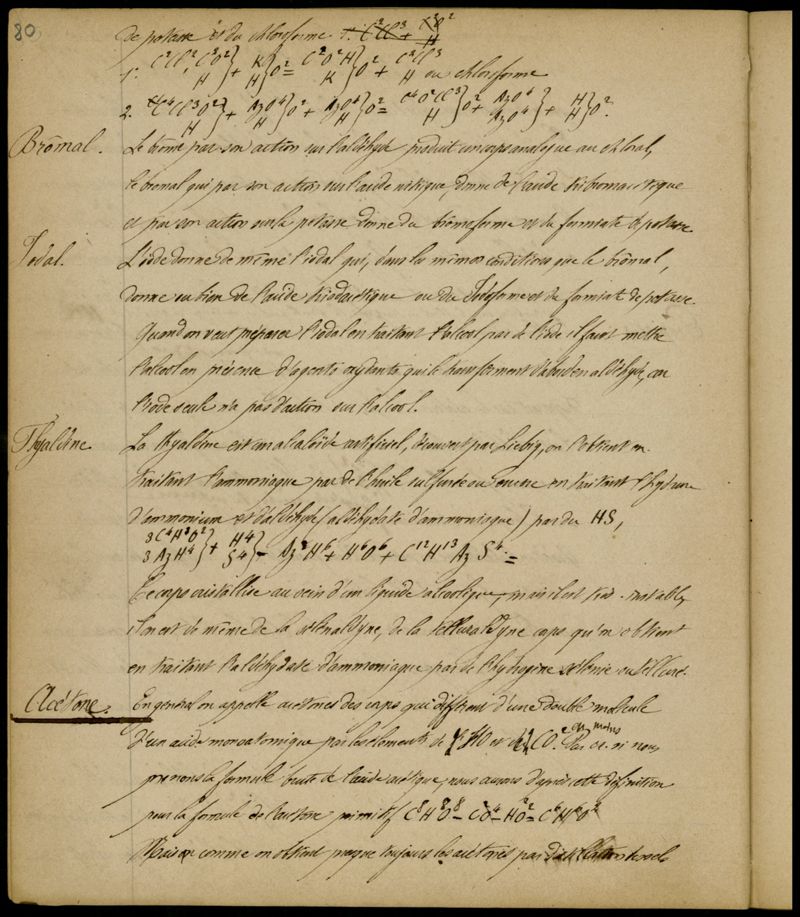 80
de potasse et du chloroforme.
1. C²Cl², C²O² H } + K H } O² = C²O²H K } O² + C²Cl³ H ou chloroforme
2. C⁴Cl³O² H } + AzO⁴ H } O² + AzO⁴ H } O² = C⁴O²Cl³ H } O² + AzO⁴ AzO⁴ } + H H } O².
Brômal. Le brome par son action sur l'aldéhyde produit un corps analogue au chloral,
le bromal qui par son action sur l'acide nitrique, donne de l'acide tribromacétique
et par son action sur la potasse donne du bromoforme et du formiate de potasse
Iodal. L'iode donne de même l'iodal qui, dans les mêmes conditions que le brômal,
donne ou bien de l'acide triodacétique ou du Iodoforme et du formiate de potasse.
Quand on veut préparer l'iodal en traitant l'alcool par de l'iode il faut mettre
l'alcool en présence d'agents oxydants qui le transforment d'abord en aldéhyde, car
l'iode seule n'a pas d'action sur l'alcool.
Thyaldine La thyaldine est un alcaloïde artificiel, découvert par Liebig, on l'obtient en
traitant l'ammoniaque par de l'huile sulfurée ou encore en traitant l'hydrure
d'ammonium et d'aldéhyde (aldéhydate d'ammoniaque) par du HS,
3 C⁴H³O² 3 AzH⁴ } + H⁴ S⁴ } = Az²H⁶ + H⁶O⁶ + C¹²H¹³AzS⁴. =
Ce corps cristallise au sein d'un liquide alcoolique, mais il est très instable,
il en est de même de la sélénaldyne, de la telluraldyne corps qu'on obtient
en traitant l'aldéhydate d'ammoniaque par de l'hydrogène sélénié ou telluré.
Acétone. En général on appelle acétones des corps qui diffèrent d'une double molécule
d'un acide monoatomique par les éléments de HO et de CO² en moins. Par ex. si nous
prenons la formule brute de l'acide acétique, nous aurons d'après cette définition
pour la formule de l'acétone primitif C⁸H⁸O⁸ - C²O⁴ - H²O² = C⁶H⁶O²
Mais comme on obtient presque toujours les acétones par distillation